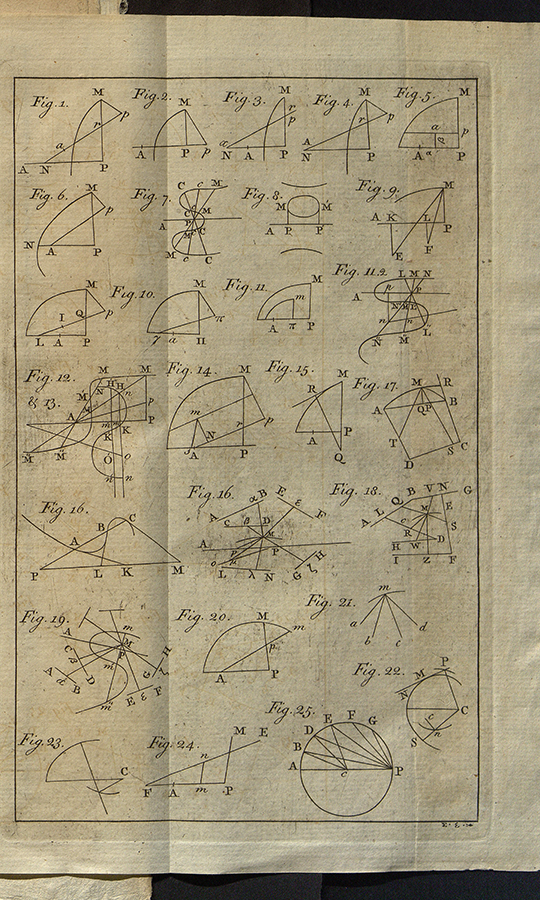 Fig. 1. Fig. 2. Fig. 3. Fig. 4. Fig. 5.
M M M M M
r p r p r p a p
a a
A N P A P p N A P N A P A a P
Fig. 6. Fig. 7. Fig. 8. Fig. 9.
M C c M M M M
p A A K L P
N A P M c C A P P E F
Fig. 10. Fig. 11. Fig. 11.2.
M M M L M N
I Q p π m A p p
L A P γ a Π A π P n N M L
Fig. 12. & 13. Fig. 14. Fig. 15. Fig. 17.
M M M M M R
N H H n m p R A B
A p N r P A P Q P
M M K K o O n n a A P Q T D S C
Fig. 16. Fig. 16. Fig. 18.
C α B E ε F A L Q B V N G
B A C β D M E
A A M P c S
P L K M o μ L λ N G ζ H R D H W I Z F
Fig. 19. Fig. 20. Fig. 21.
m M m m
A M P p a b c d
C β D m G ζ H A P
A α B m E ε F
Fig. 22.
N M P
C
c n
S
Fig. 23. Fig. 24. Fig. 25.
C M E B D E F G
n A c P
F A m P